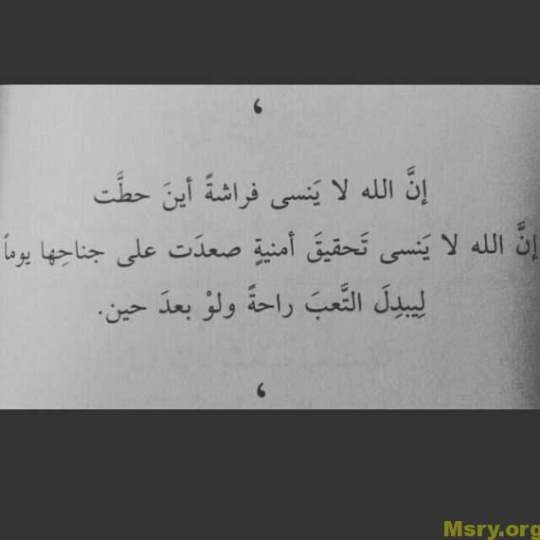 ،
إنَّ الله لا يَنسى فراشةً أينَ حطَّت
إنَّ الله لا يَنسى تَحقيقَ أمنيةٍ صعدَت على جناحِها يوماً
لِيبدِلَ التَّعبَ راحةً ولوْ بعدَ حين.
،
Msry.org